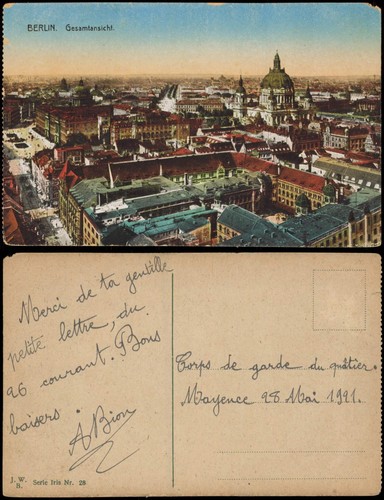 BERLIN. Gesamtansicht.
Merci de ta gentille
petite lettre, du
26 courant. Bons
baisers.
A Bion
Corps de garde du quâtier.
Mayence 28 Mai 1921.
J. W.
B. Serie Iris Nr. 28